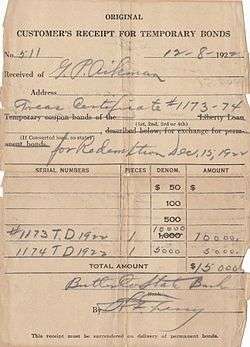 ORIGINAL
CUSTOMER'S RECEIPT FOR TEMPORARY BONDS
No. 511 12-8-1922
Received of G. P. Aikman
Address
Treas Certificate #1173-74
Temporary coupon bonds of the Liberty Loan,
(1st, 2nd, 3rd or 4th)
described below, for exchange for perm-
(If Converted loan, so state)
anent bonds. for Redemption Dec, 15, 1922
SERIAL NUMBERS PIECES DENOM. AMOUNT
$ 50 $
100
500
10000
#1173 T.D 1922 1 1,000 10000
1174 T D 1922 1 5000 5000
TOTAL AMOUNT $15000
Butler State Bank
By
This receipt must be surrendered on delivery of permanent bonds.